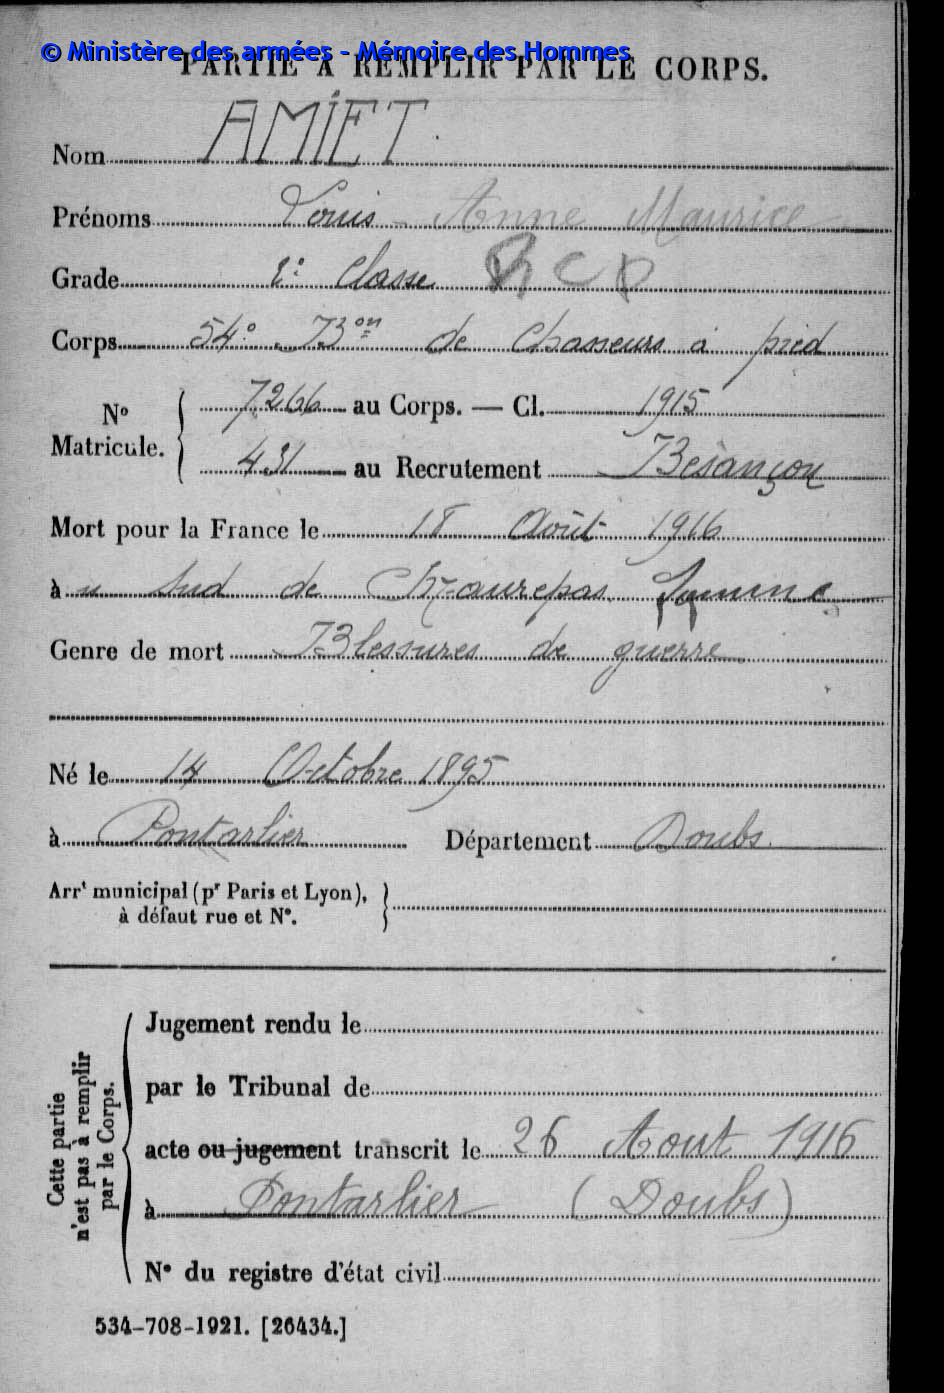 © Ministère des armées - Mémoire des Hommes
PARTIE A REMPLIR PAR LE CORPS.
Nom AMIET
Prénoms Louis - Anne Maurice
Grade 2e Classe
Corps 54e 73on de Chasseurs à pied
No Matricule. { 7266 au Corps. — Cl. 1915
431 au Recrutement Besançon
Mort pour la France le 18 Août 1916
à u Sud de Maurepas Somme
Genre de mort Blessures de guerre
Né le 14 Octobre 1895
à Pontarlier Département Doubs.
Arrt municipal (pr Paris et Lyon),
à défaut rue et No. }
Cette partie n'est pas à remplir par le Corps.
Jugement rendu le
par le Tribunal de
acte ou jugement transcrit le 26 Aout 1916
à Pontarlier (Doubs)
No du registre d'état civil
534-708-1921. [26434.]